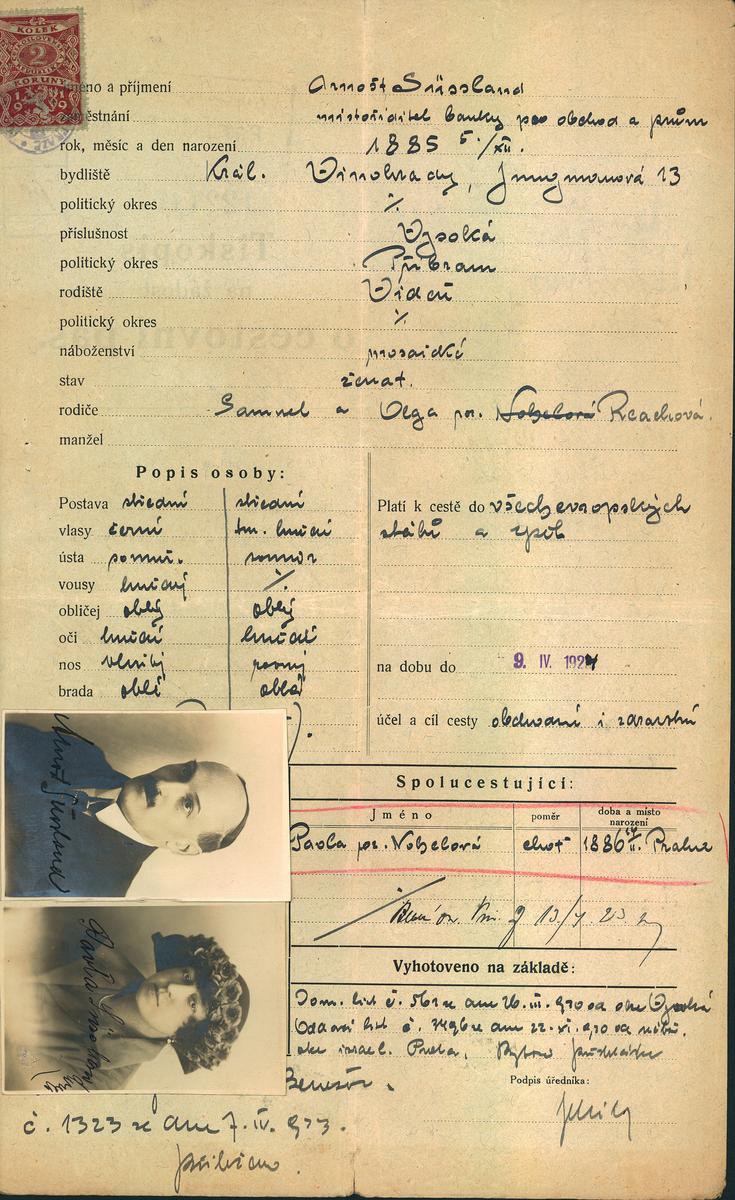 KOLEK
2
KORUNY
1919
jméno a příjmení Arnošt Süssland
zaměstnání místoředitel banky pro obchod a prům
rok, měsíc a den narození 1885 5./XII.
bydliště Král. Vinohrady, Jungmanová 13
politický okres %
příslušnost Vysoká
politický okres Příbram
rodiště Vídeň
politický okres %
náboženství mosaické
stav ženat.
rodiče Samuel a Olga roz. Nobelová Reachová.
manžel
Popis osoby:
Postava střední střední
vlasy černé tm. hnědé
ústa souměr. souměr
vousy hnědý %
obličej oblý oblý
oči hnědé hnědé
nos rovný
brada oblá oblá
Platí k cestě do všech evropských
států a zpět
na dobu do 9. IV. 1924
účel a cíl cesty obchodní i zdravotní
Spolucestující:
Jméno poměr doba a místo narození
Pavla roz. Nobelová choť 1886 Praha
13/4 23
Vyhotoveno na základě:
Dom. list č. 561 ze dne 26. III. 920 od obce Vysoká
Oddací list č. ze dne 22. XI. 920 od
obce israel. Praha.
Benešov.
Podpis úředníka:
č. 1323 ze dne 7. IV. 923.
Arnošt Süssland
Pavla